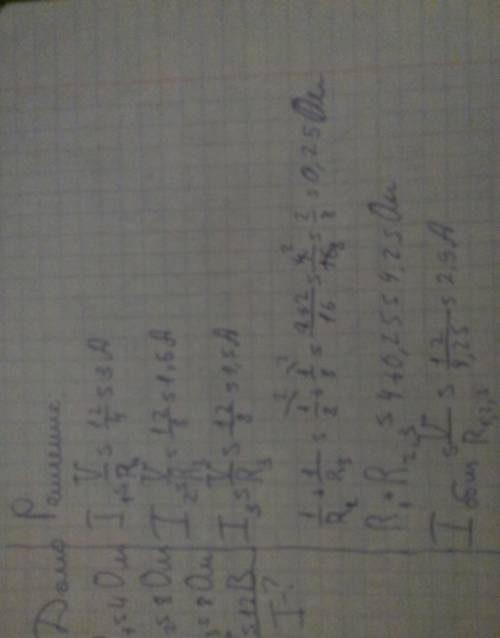 Дано Решение
1=4 Ом I1=V/R1=12/4=3A
2=8 Ом I2=V/R2=12/8=1,5A
3=8 Ом I3=V/R3=12/8=1,5A
=12 В
I-?
1/R2+1/R3=1/8+1/8=2+2/16=4/16=2/8=0,25 Ом
R1+R2,3=4+0,25=4,25 Ом
I общ=V/R1,2,3=12/4,25=2,9A